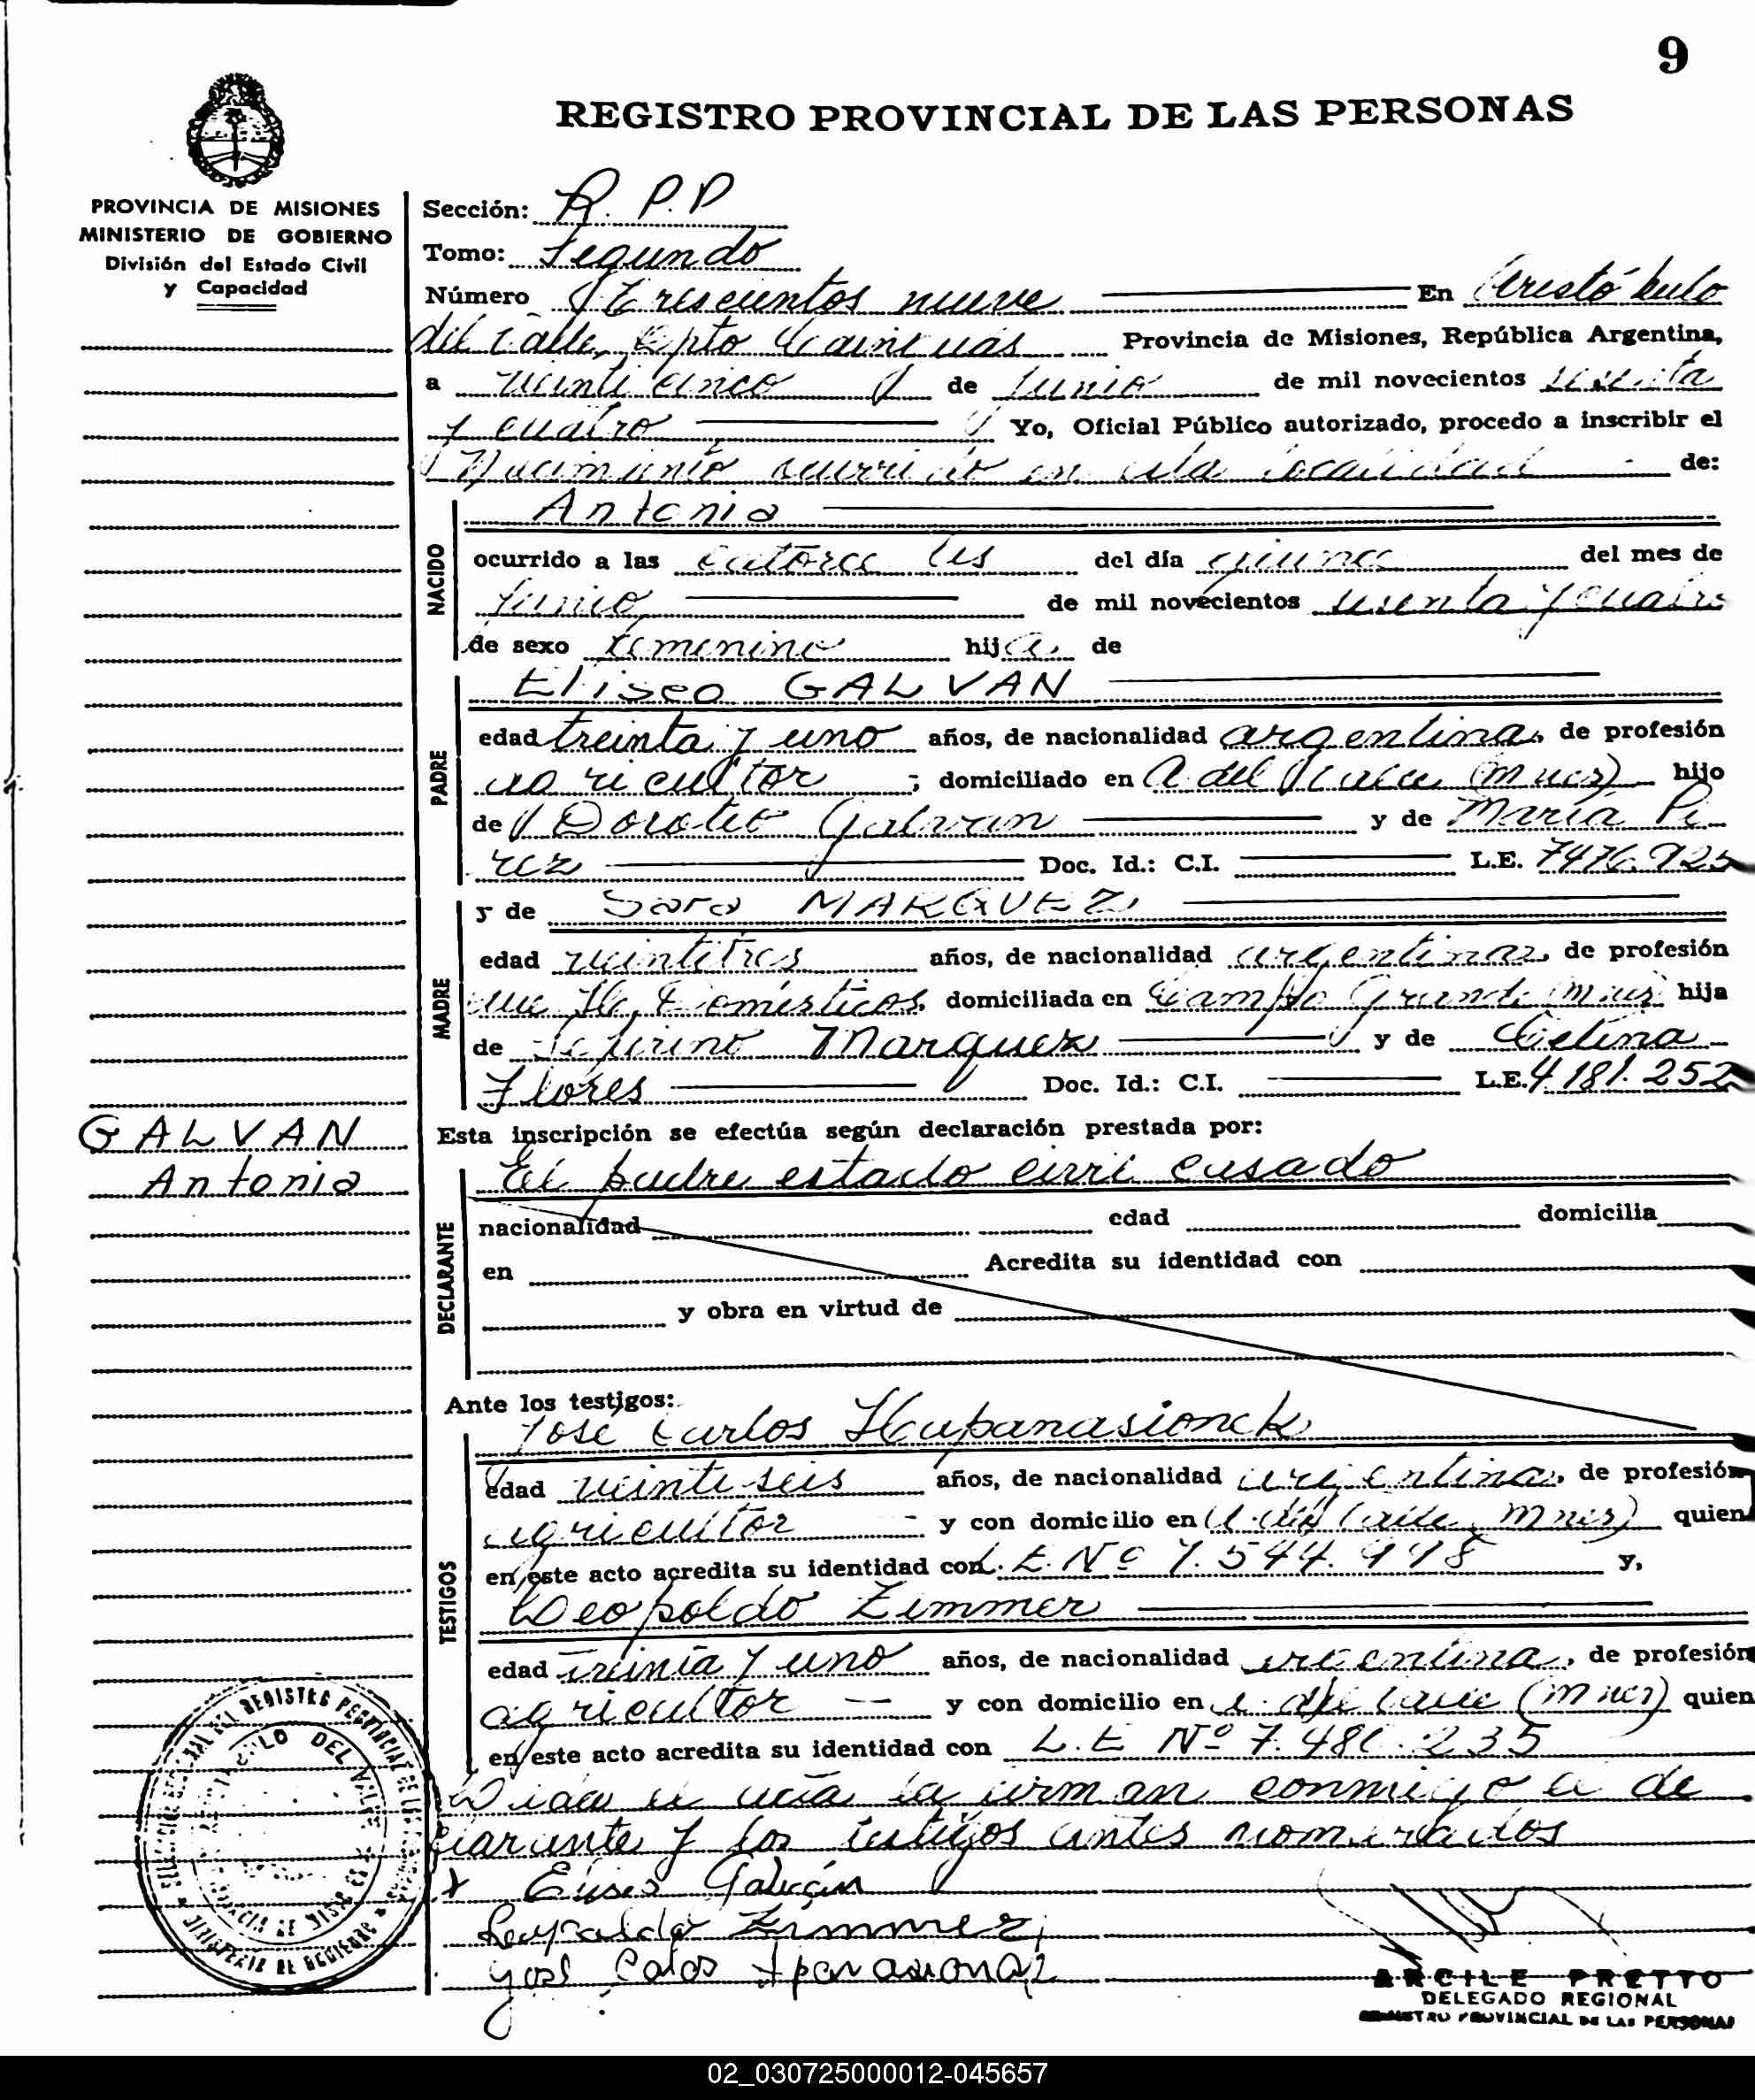 9
REGISTRO PROVINCIAL DE LAS PERSONAS
PROVINCIA DE MISIONES
MINISTERIO DE GOBIERNO
División del Estado Civil
y Capacidad
Sección: R. P.P
Tomo: Segundo
Número Trescientos nueve En Aristóbulo
del Valle, Dpto Cainguás Provincia de Misiones, República Argentina,
a veinticinco de Junio de mil novecientos sesenta
y cuatro Yo, Oficial Público autorizado, procedo a inscribir el
Nacimiento ocurrido en esta localidad de:
NACIDO
Antonia
ocurrido a las catorce hs del día quince del mes de
Junio de mil novecientos sesenta y cuatro
de sexo femenino hija de
PADRE
Eliseo GALVAN
edad treinta y uno años, de nacionalidad argentina, de profesión
agricultor ; domiciliado en A. del Valle (Mnes) hijo
de Doroteo Galvan y de María Pe
rez Doc. Id.: C.I. L.E. 7476.925
MADRE
y de Sara MARQUEZ
edad veintitres años, de nacionalidad argentina, de profesión
que Hc. Domésticos, domiciliada en Campo Grande (Mnes) hija
de Seferino Marquez y de Celina
Flores Doc. Id.: C.I. L.E. 4.181.252
GALVAN
Antonia
Esta inscripción se efectúa según declaración prestada por:
DECLARANTE
El padre estado civil casado
nacionalidad edad domicilia
en Acredita su identidad con
y obra en virtud de
Ante los testigos:
TESTIGOS
José Carlos
edad veintiseis años, de nacionalidad argentina, de profesión
agricultor y con domicilio en A. del Valle (Mnes) quien
en este acto acredita su identidad con L.E. Nº 7.544.998 y,
Leopoldo Zimmer
edad treinta y uno años, de nacionalidad argentina, de profesión
agricultor y con domicilio en A. del Valle (Mnes) quien
en este acto acredita su identidad con L.E Nº 7.480.235
Leida el acta la firman conmigo el de
clarante y los testigos antes nombrados
x Eliseo Galván
Leopoldo Zimmer
José Calos
ARCILE PRETTO
DELEGADO REGIONAL
REGISTRO PROVINCIAL DE LAS PERSONAS
REGISTRO PROVINCIAL DE LAS
ARISTOBULO DEL VALLE
PROVINCIA DE MISIONES
MINISTERIO DE GOBIERNO
02_030725000012-045657